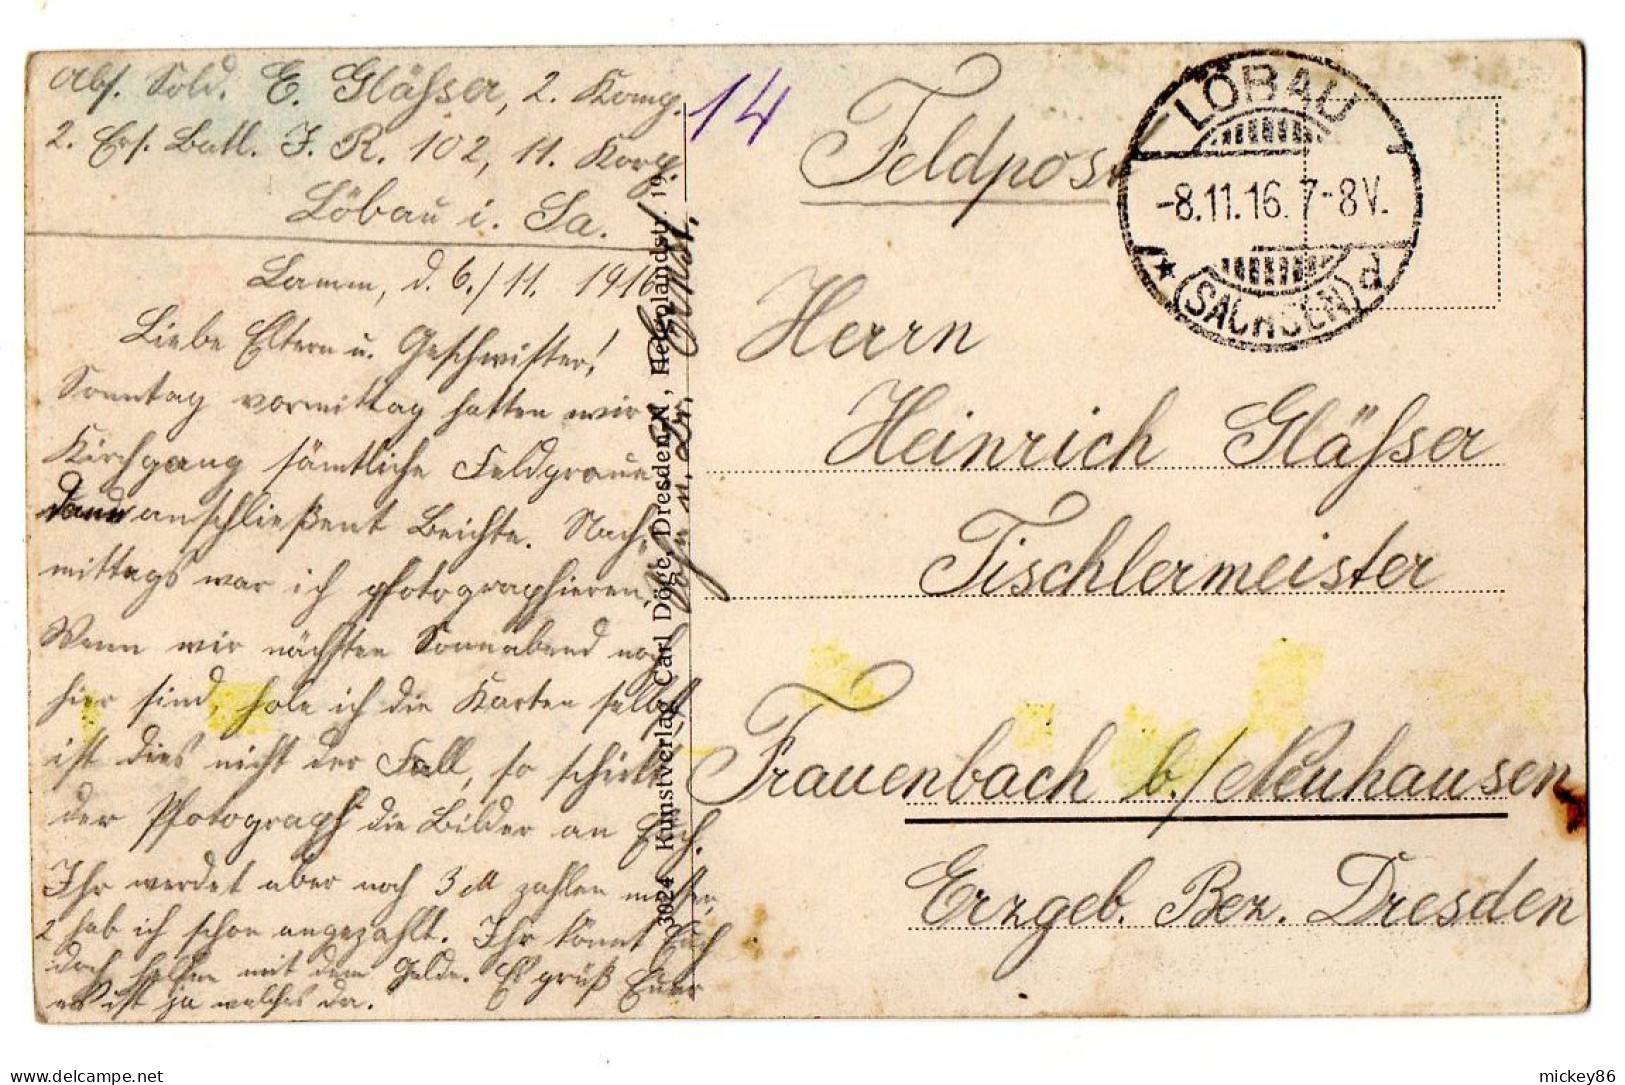 Abs. Sold. E. Gläßer, 2. Komp.
2. Ers. Batl. I. R. 102, 11. Korp.
Löbau i. Sa.
14
Feldpost
LÖBAU
-8.11.16. 7-8V.
* SACHSEN d
Lamm, d. 6./11. 1916
Liebe Eltern u. Geschwister!
Sonntag vormittag hatten wir
Kirchgang sämtliche Feldgraue
dann anschließent Beichte. Nach-
mittags war ich photographieren.
Wenn wir nächsten Sonnabend noch
hier sind, hole ich die Karten selbst
ist dies nicht der Fall, so schickt
der Photograph die Bilder an Euch.
Ihr werdet aber noch 3 M zahlen müssen,
2 hab ich schon angezahlt. Ihr könnt Euch
doch helfen mit dem Gelde. Es grüß Euer
es ist ja welches da.
Sohn u. Br. Ernst.
3024 Kunstverlag Carl Döge, Dresden-N., Helgolandstr. 19.
Herrn
Heinrich Gläßer
Tischlermeister
Frauenbach b./Neuhausen
Erzgeb. Bez. Dresden
mickey86